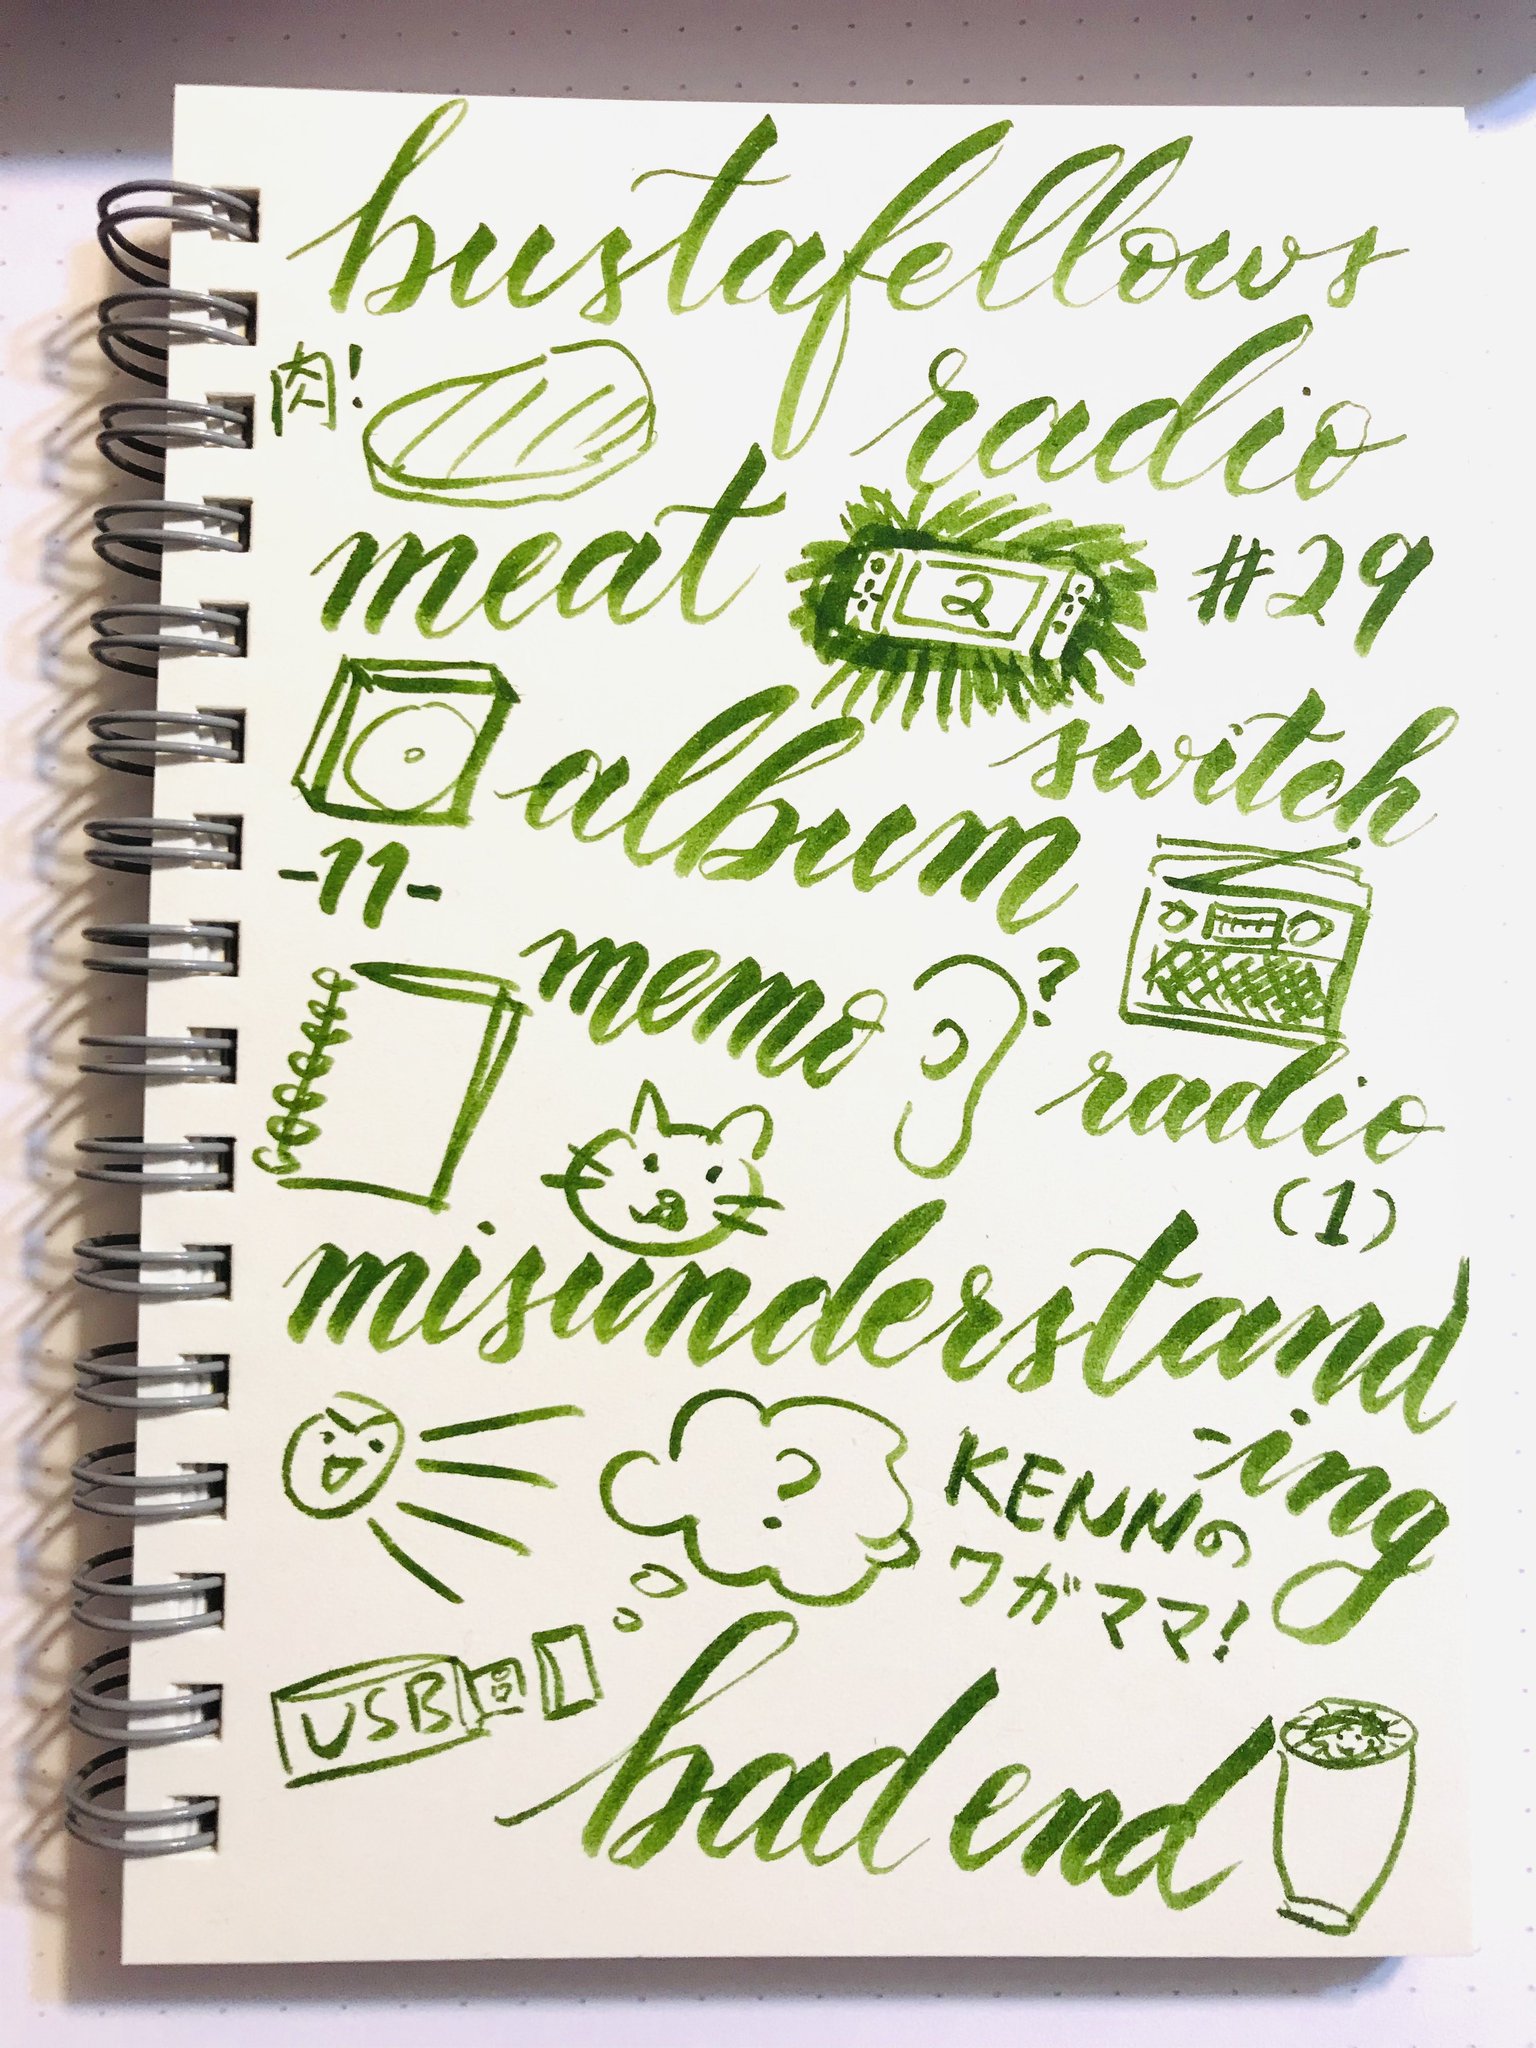 bustafellows
肉!
radio
meat
2
#29
switch
album
-11-
memo
?
radio
(1)
misunderstand
-ing
?
KENNの
ワガママ!
USB
bad end